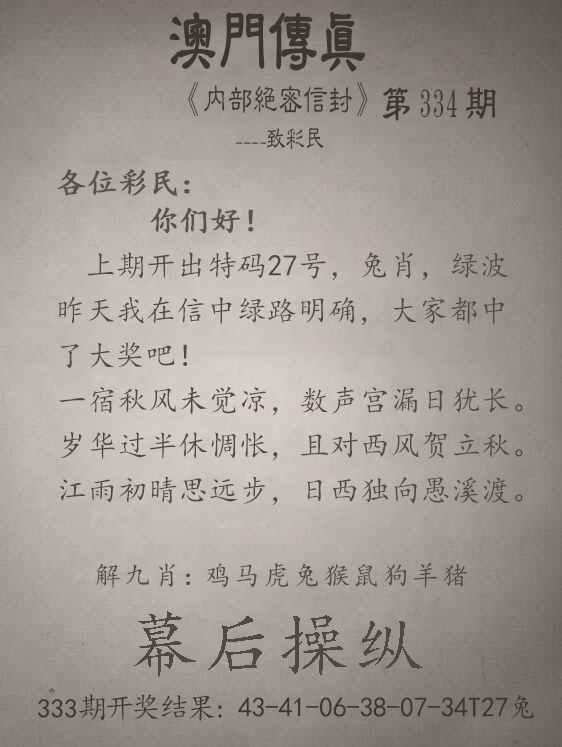 澳門傳眞
《内部絕密信封》第334期
----致彩民
各位彩民：
你们好！
上期开出特码27号，兔肖，绿波
昨天我在信中绿路明确，大家都中
了大奖吧！
一宿秋风未觉凉，数声宫漏日犹长。
岁华过半休惆怅，且对西风贺立秋。
江雨初晴思远步，日西独向愚溪渡。
解九肖：鸡马虎兔猴鼠狗羊猪
幕后操纵
333期开奖结果：43-41-06-38-07-34T27兔